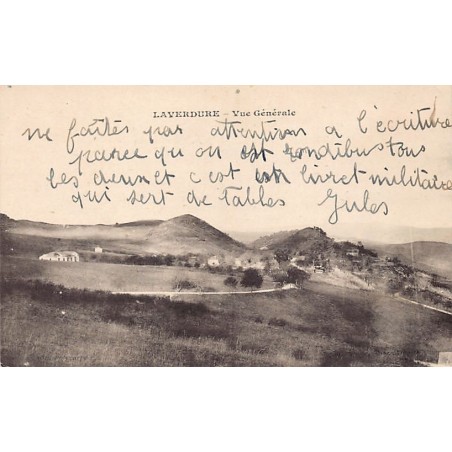 LAVERDURE - Vue Générale
ne faites pas attention a l'écriture
parce qu on est rondibus tous
les deux et c'est un livret militaire
qui sert de tables Jules